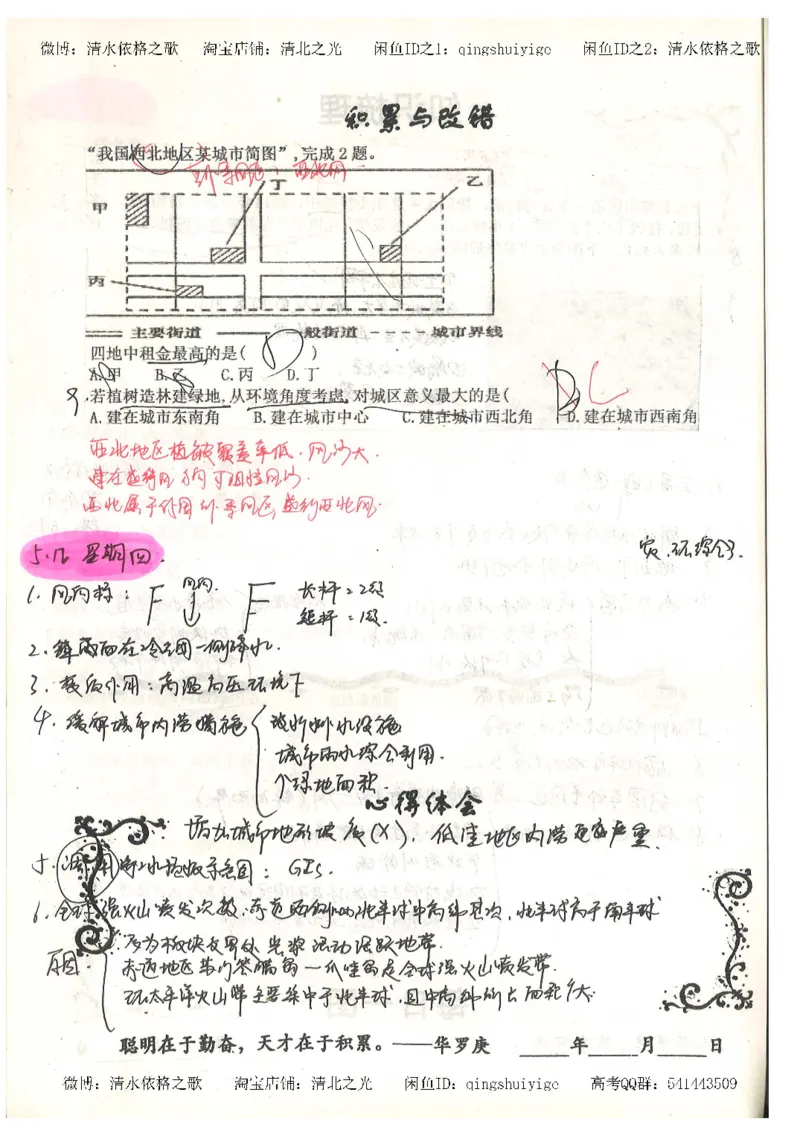 微博：清水依格之歌 淘宝店铺：清北之光 闲鱼ID之1：qingshuiyige 闲鱼ID之2：清水依格之歌
积累与改错
“我国西北地区某城市简图”,完成2题。
丁
乙
甲
丙
主要街道 一般街道 城市界线
四地中租金最高的是( D )
A.甲 B.乙 C.丙 D.丁
若植树造林建绿地,从环境角度考虑,对城区意义最大的是(
D C
A.建在城市东南角 B.建在城市中心 C.建在城市西北角 D.建在城市西南角
西北地区植被覆盖率低.风沙大.
建在盛行风 可阻挡风沙.
西北属于 季风区 盛行西北风.
5.12 星期四.
1.风向标： 风向. 长杆=2级
短杆=1级.
2.锋面雨在冷气团一侧降水.
3.变质作用：高温高压环境下
4.缓解城市内涝措施 设施
城市雨水综合利用.
绿地面积
心得体会
增加城市地形坡度(X).低洼地区内涝更严重.
GIS.
6.全球强火山喷发次数.赤道 北半球中高纬其次.北半球高于南半球
原因. 多为板块交界处 岩浆活动活跃地带.
赤道地区 是全球强火山喷发带.
环太平洋火山带主要集中于北半球.且中高纬
聪明在于勤奋，天才在于积累。——华罗庚 年 月 日
微博：清水依格之歌 淘宝店铺：清北之光 闲鱼ID：qingshuiyige 高考QQ群：541443509